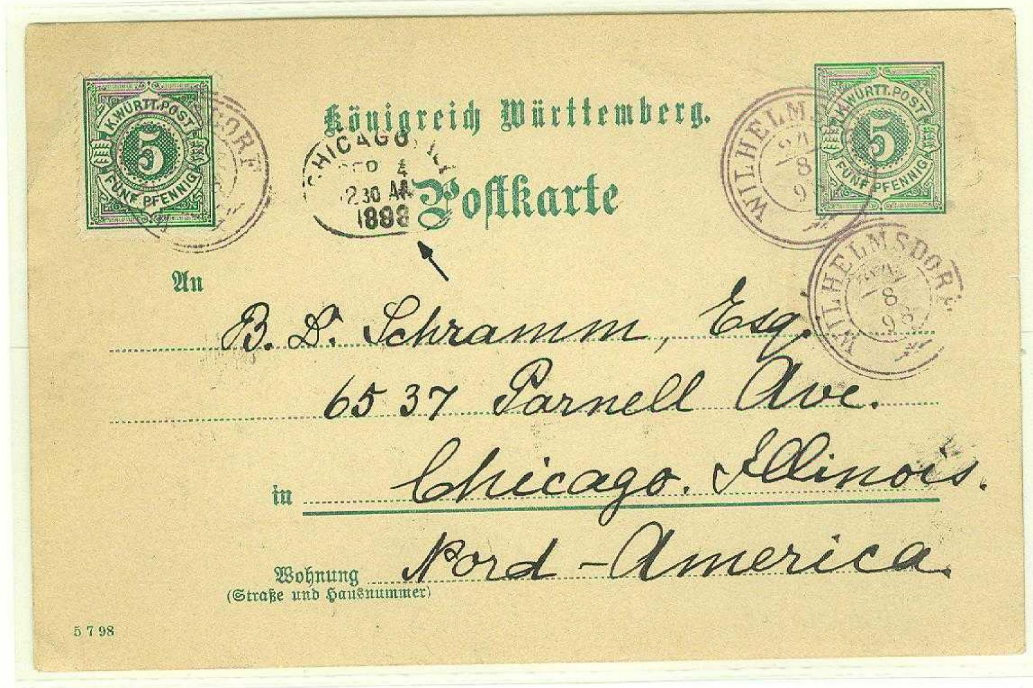 K. WÜRTT. POST
5
FÜNF PFENNIG
Königreich Württemberg.
Postkarte
CHICAGO, ILL
SEP 4
2 30 AM
1898
WILHELMSDORF
24
8
98
K. WÜRTT. POST
5
FÜNF PFENNIG
WILHELMSDORF.
24
8
98
An
B. D. Schramm, Esq.
6537 Parnell Ave.
in Chicago. Illinois.
Wohnung Nord-America.
(Straße und Hausnummer)
5 7 98